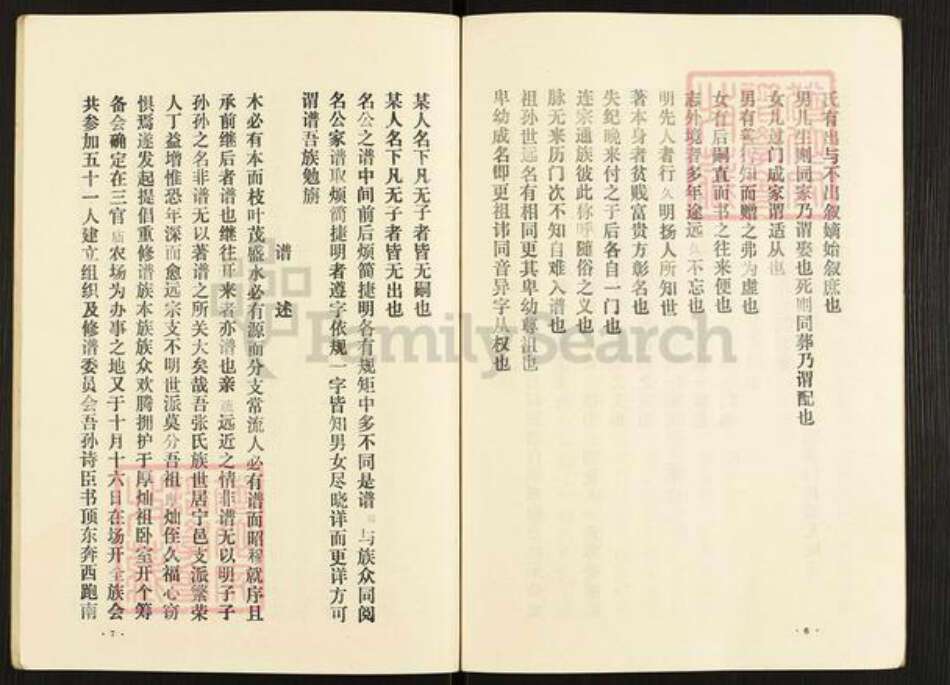 氏有出与不出叙嫡始叙庶也
男儿生则同家乃谓娶也死则同葬乃谓配也
女儿过门成家谓适从也
男有 知而赠之弗为虚也
女有后嗣直而书之往来便也
志外境者多年途远久不忘也
明先人者行久明扬人所知世
著本身者贫贱富贵方彰名也
失纪晚来付之于后各自一门也
连宗通族彼此称呼随俗之义也
脉无来历门次不知自难入谱也
祖孙世远名有相同更其卑幼尊祖也
卑幼成名即更祖讳同音异字从权也
·6·
某人名下凡无子者皆无嗣也
某人名下凡无子者皆无出也
名公之谱中间前后烦简捷明各有规矩中多不同是谱 与族众同阅
名公家谱取烦简捷明者遵字依规一字皆知男女尽晓详而更详方可
谓谱吾族勉旃
谱述
木必有本而枝叶茂盛水必有源而分支常流人必有谱而昭穆就序且
承前继后者谱也继往开来者亦谱也亲 远近之情非谱无以明子子
孙孙之名非谱无以著谱之所关大矣哉吾张氏族世居宁邑支派繁荣
人丁益增惟恐年深而愈远宗支不明世派莫分吾祖 灿侄久福心窃
惧焉遂发起提倡重修谱族本族族众欢腾拥护于厚灿祖卧室开个筹
备会确定在三官庙农场为办事之地又于十月十六日在场开全族会
共参加五十一人建立组织及修谱委员会吾孙诗臣书顶东奔西跑南
·7·
FamilySearch